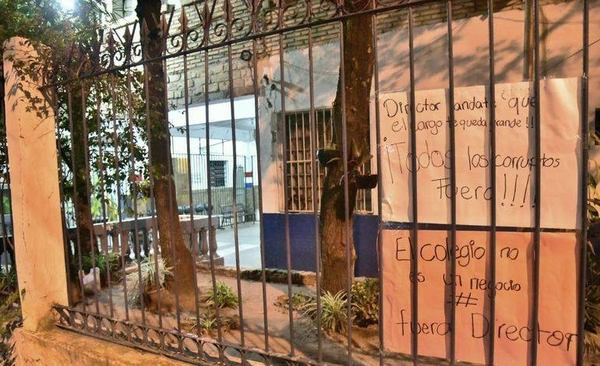 Director andate que
el cargo te queda grande!!
¡Todos los corruptos
Fuera!!!!
El colegio no
es un negocio
#
fuera Director